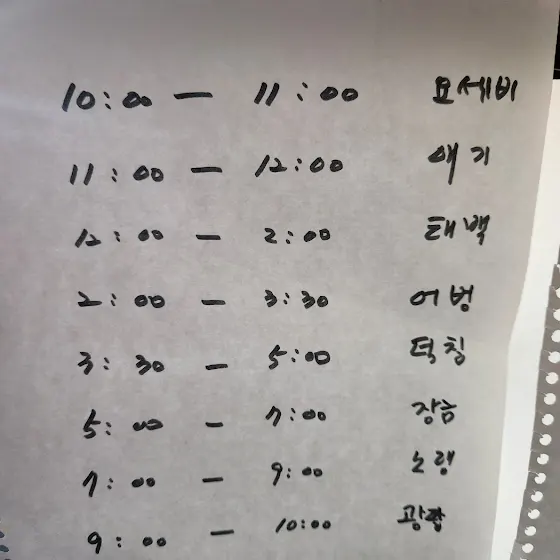 10:00 — 11:00 요세비
11:00 — 12:00 애기
12:00 — 2:00 태백
2:00 — 3:30 어벙
3:30 — 5:00 덕칠
5:00 — 7:00 장금
7:00 — 9:00 노랭
9:00 — 10:00